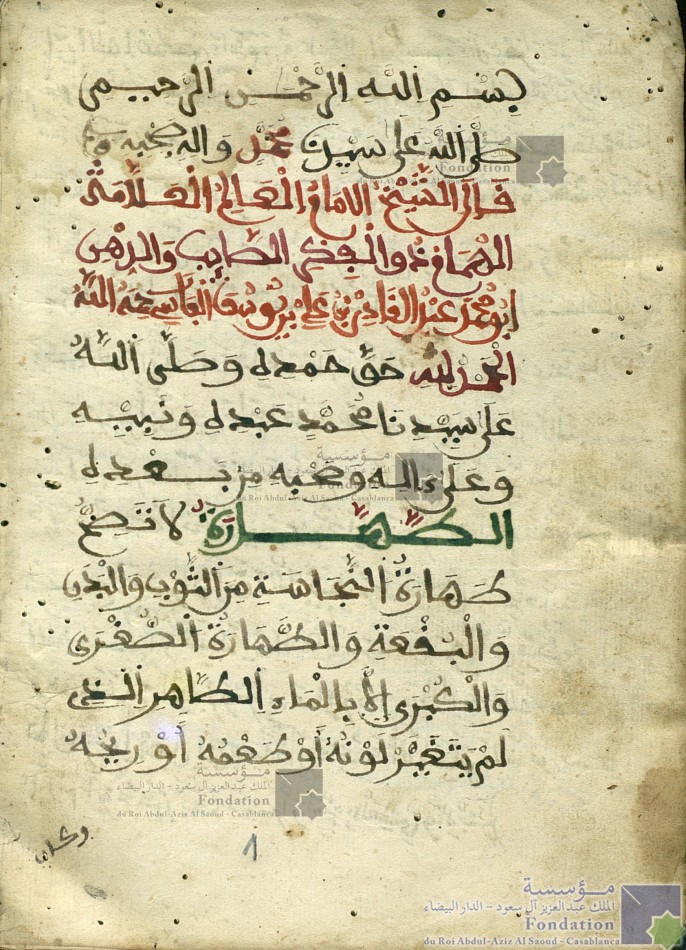 بسم الله الرحمن الرحيم
صلى الله على سيدنا محمد واله وصحبه
قال الشيخ الامام العالم العلامة
الهمام ذو الفكر الصايب والذهن
ابو محمد عبد القادر بن علي بن يوسف الفاسي رحمه الله
الحمد لله حق حمده وصلى الله
على سيدنا محمد عبده ونبيه
وعلى ءاله وصحبه من بعده
الطهارة لا تصح
طهارة النجاسة من الثوب والبدن
والبقعة والطهارة الصغرى
والكبرى إلا بالماء الطاهر الذي
لم يتغير لونه أو طعمه أو ريحه
1
مؤسسة
الملك عبد العزيز آل سعود - الدار البيضاء
Fondation
du Roi Abdul-Aziz Al Saoud - Casablanca